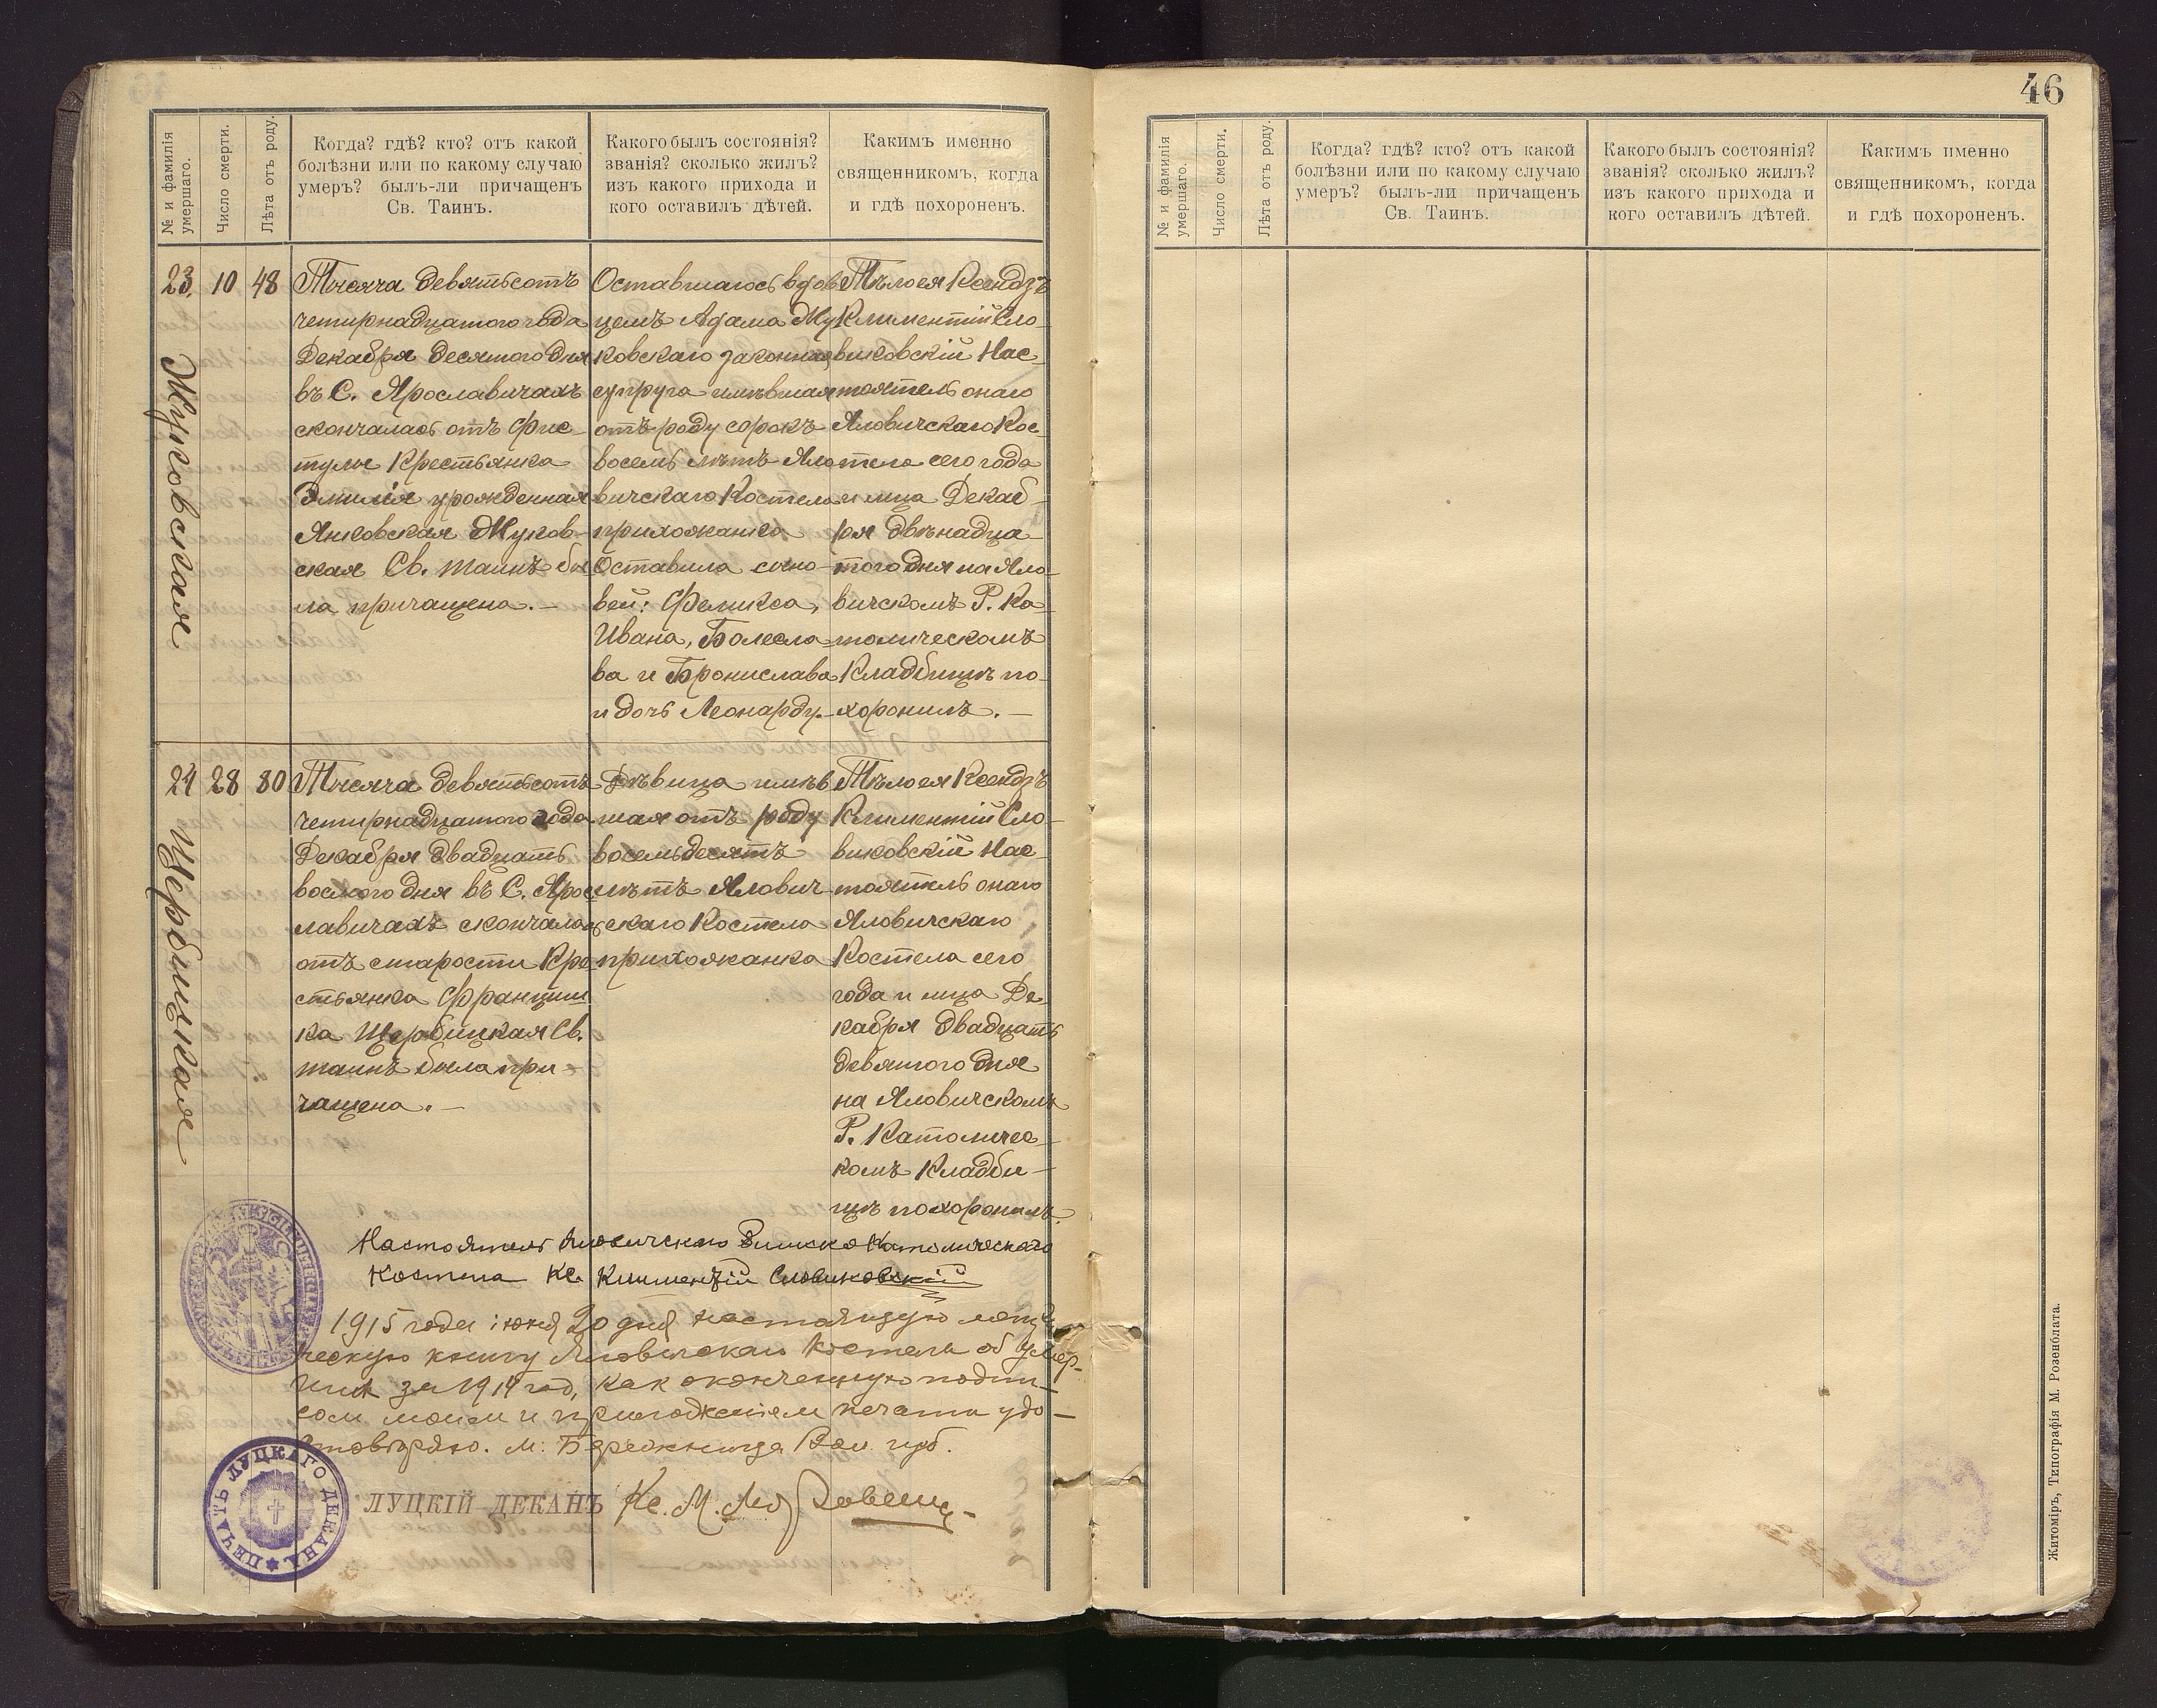 № и фамилія
умершаго.
Число смерти.
Лѣта отъ роду.
Когда? гдѣ? кто? отъ какой
болѣзни или по какому случаю
умеръ? былъ-ли причащенъ
Св. Таинъ.
Какого былъ состоянія?
званія? сколько жилъ?
изъ какого прихода и
кого оставилъ дѣтей.
Какимъ именно
священникомъ, когда
и гдѣ похороненъ.
23.
Жуковская
10
48
Тысяча девятьсотъ
четырнадцатого года
Декабря десятого дня
въ С. Ярославичахъ
скончалась отъ фис-
тулы Крестьянка
Эмилія урожденная
Янковская Жуков-
ская Св. таинъ бы
ла причащена. —
Оставшагось вдов
цемъ Адама Жу
ковскаго законная
супруга имѣвшая
отъ роду сорокъ
восемь лѣтъ Яло
вичскаго Костела
прихожанка
Оставила сыно-
вей: Феликса,
Ивана, Болесла-
ва и Бронислава
и дочь Леонарду. —
Тѣло ея Ксендзъ
Климентій Сло-
виковскій Нас-
тоятель онаго
Яловичскаго Кос-
тела сего года
и мца Декаб-
ря двѣнадца-
того дня на Яло-
вичскомъ Р. Ка-
толическомъ
Кладбищѣ по-
хоронилъ. —
24
Щербицкая
28
80
Тысяча девятьсотъ
четырнадцатого года
Декабря двадцать
восмого дня въ С. Ярос
лавичахъ скончалась
отъ старости Кре
стьянка Франциш
ка Щербицкая Св.
таинъ была при-
чащена. —
Дѣвица имѣв
шая отъ роду
восемьдесятъ
лѣтъ Ялович-
скаго Костела
прихожанка
Тѣло ея Ксендзъ
Климентій Сло-
виковскій Нас-
тоятель онаго
Яловичскаго
Костела сего
года и мца Де-
кабря двадцать
девятого дня
на Яловичскомъ
Р. Католичес-
комъ Кладби-
щѣ похоронилъ.
Настоятель Яловичскаго Римско Католическаго
Костела Кс. Климентій Словиковскій
1915 года іюня 20 дня настоящую метри
ческую книгу Яловичскаго Костела об умер-
ших за 1914 год, как оконченную подпи-
сом моим и приложеніем печати удо-
стовѣряю. м. Бережница Вол. губ.
ЛУЦКІЙ ДЕКАНЪ Кс. М.
ПЕЧАТЬ ЛУЦКАГО ДЕКАНА
46
№ и фамилія
умершаго.
Число смерти.
Лѣта отъ роду.
Когда? гдѣ? кто? отъ какой
болѣзни или по какому случаю
умеръ? былъ-ли причащенъ
Св. Таинъ.
Какого былъ состоянія?
званія? сколько жилъ?
изъ какого прихода и
кого оставилъ дѣтей.
Какимъ именно
священникомъ, когда
и гдѣ похороненъ.
Житоміръ, Типографія М. Розенблата.